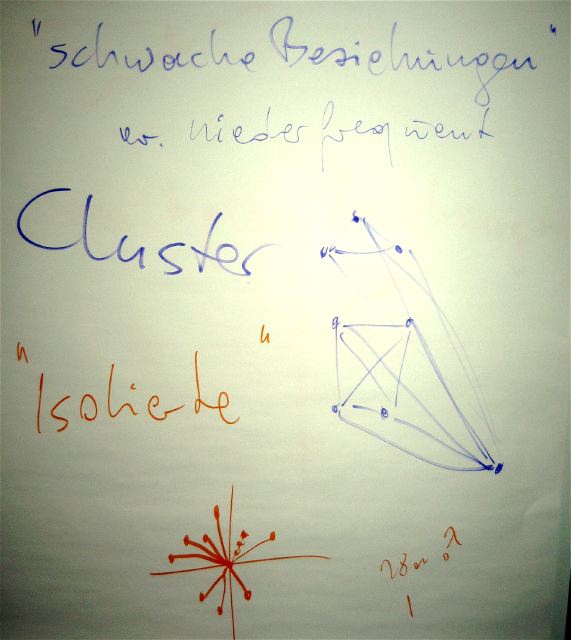 "schwache Beziehungen"
niederfrequent
Cluster
"Isolierte"